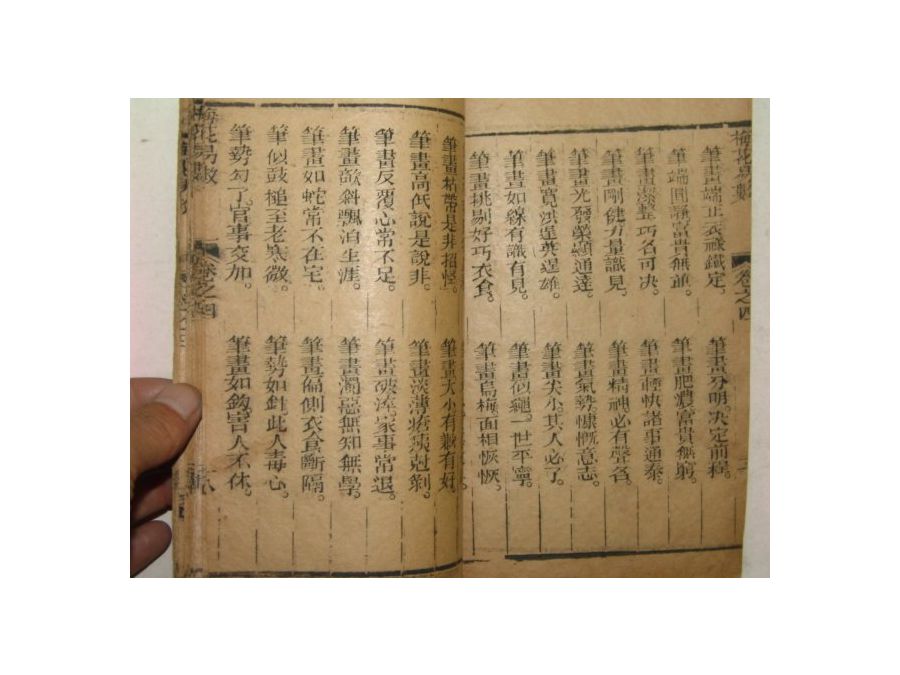 梅花易數 卷之四
筆畫端正衣祿鐵定、筆畫分明、决定前程。
筆端圓議富貴無並、筆畫肥濃富貴無窮。
筆畫潔整巧名可决、筆畫輕快諸事通泰。
筆畫剛健力量識見、筆畫精神必有聲名。
筆畫光發榮顯通達、筆畫氣勢慷慨意志。
筆畫寬洪逞英逞雄、筆畫尖小其人必了。
筆畫如線有識有見、筆畫似繩一世平寧。
筆畫挑剔好巧衣食、筆畫烏梅面相恢恢。
筆畫粘帶是非招怪。筆畫大小有剩有好。
筆畫高低說是說非。筆畫淡薄瘡痍剋剝。
筆畫反覆心常不足。筆畫破淹家事常退。
筆畫欹斜飄泊生涯。筆畫濁惡無知無學。
筆畫如蛇常不在宅。筆畫偏側衣食斷隔。
筆似鼓槌至老寒微。筆勢如針此人毒心。
筆勢勾了官事交加。筆畫如鈎害人不休。
梅花易數 卷之四 八